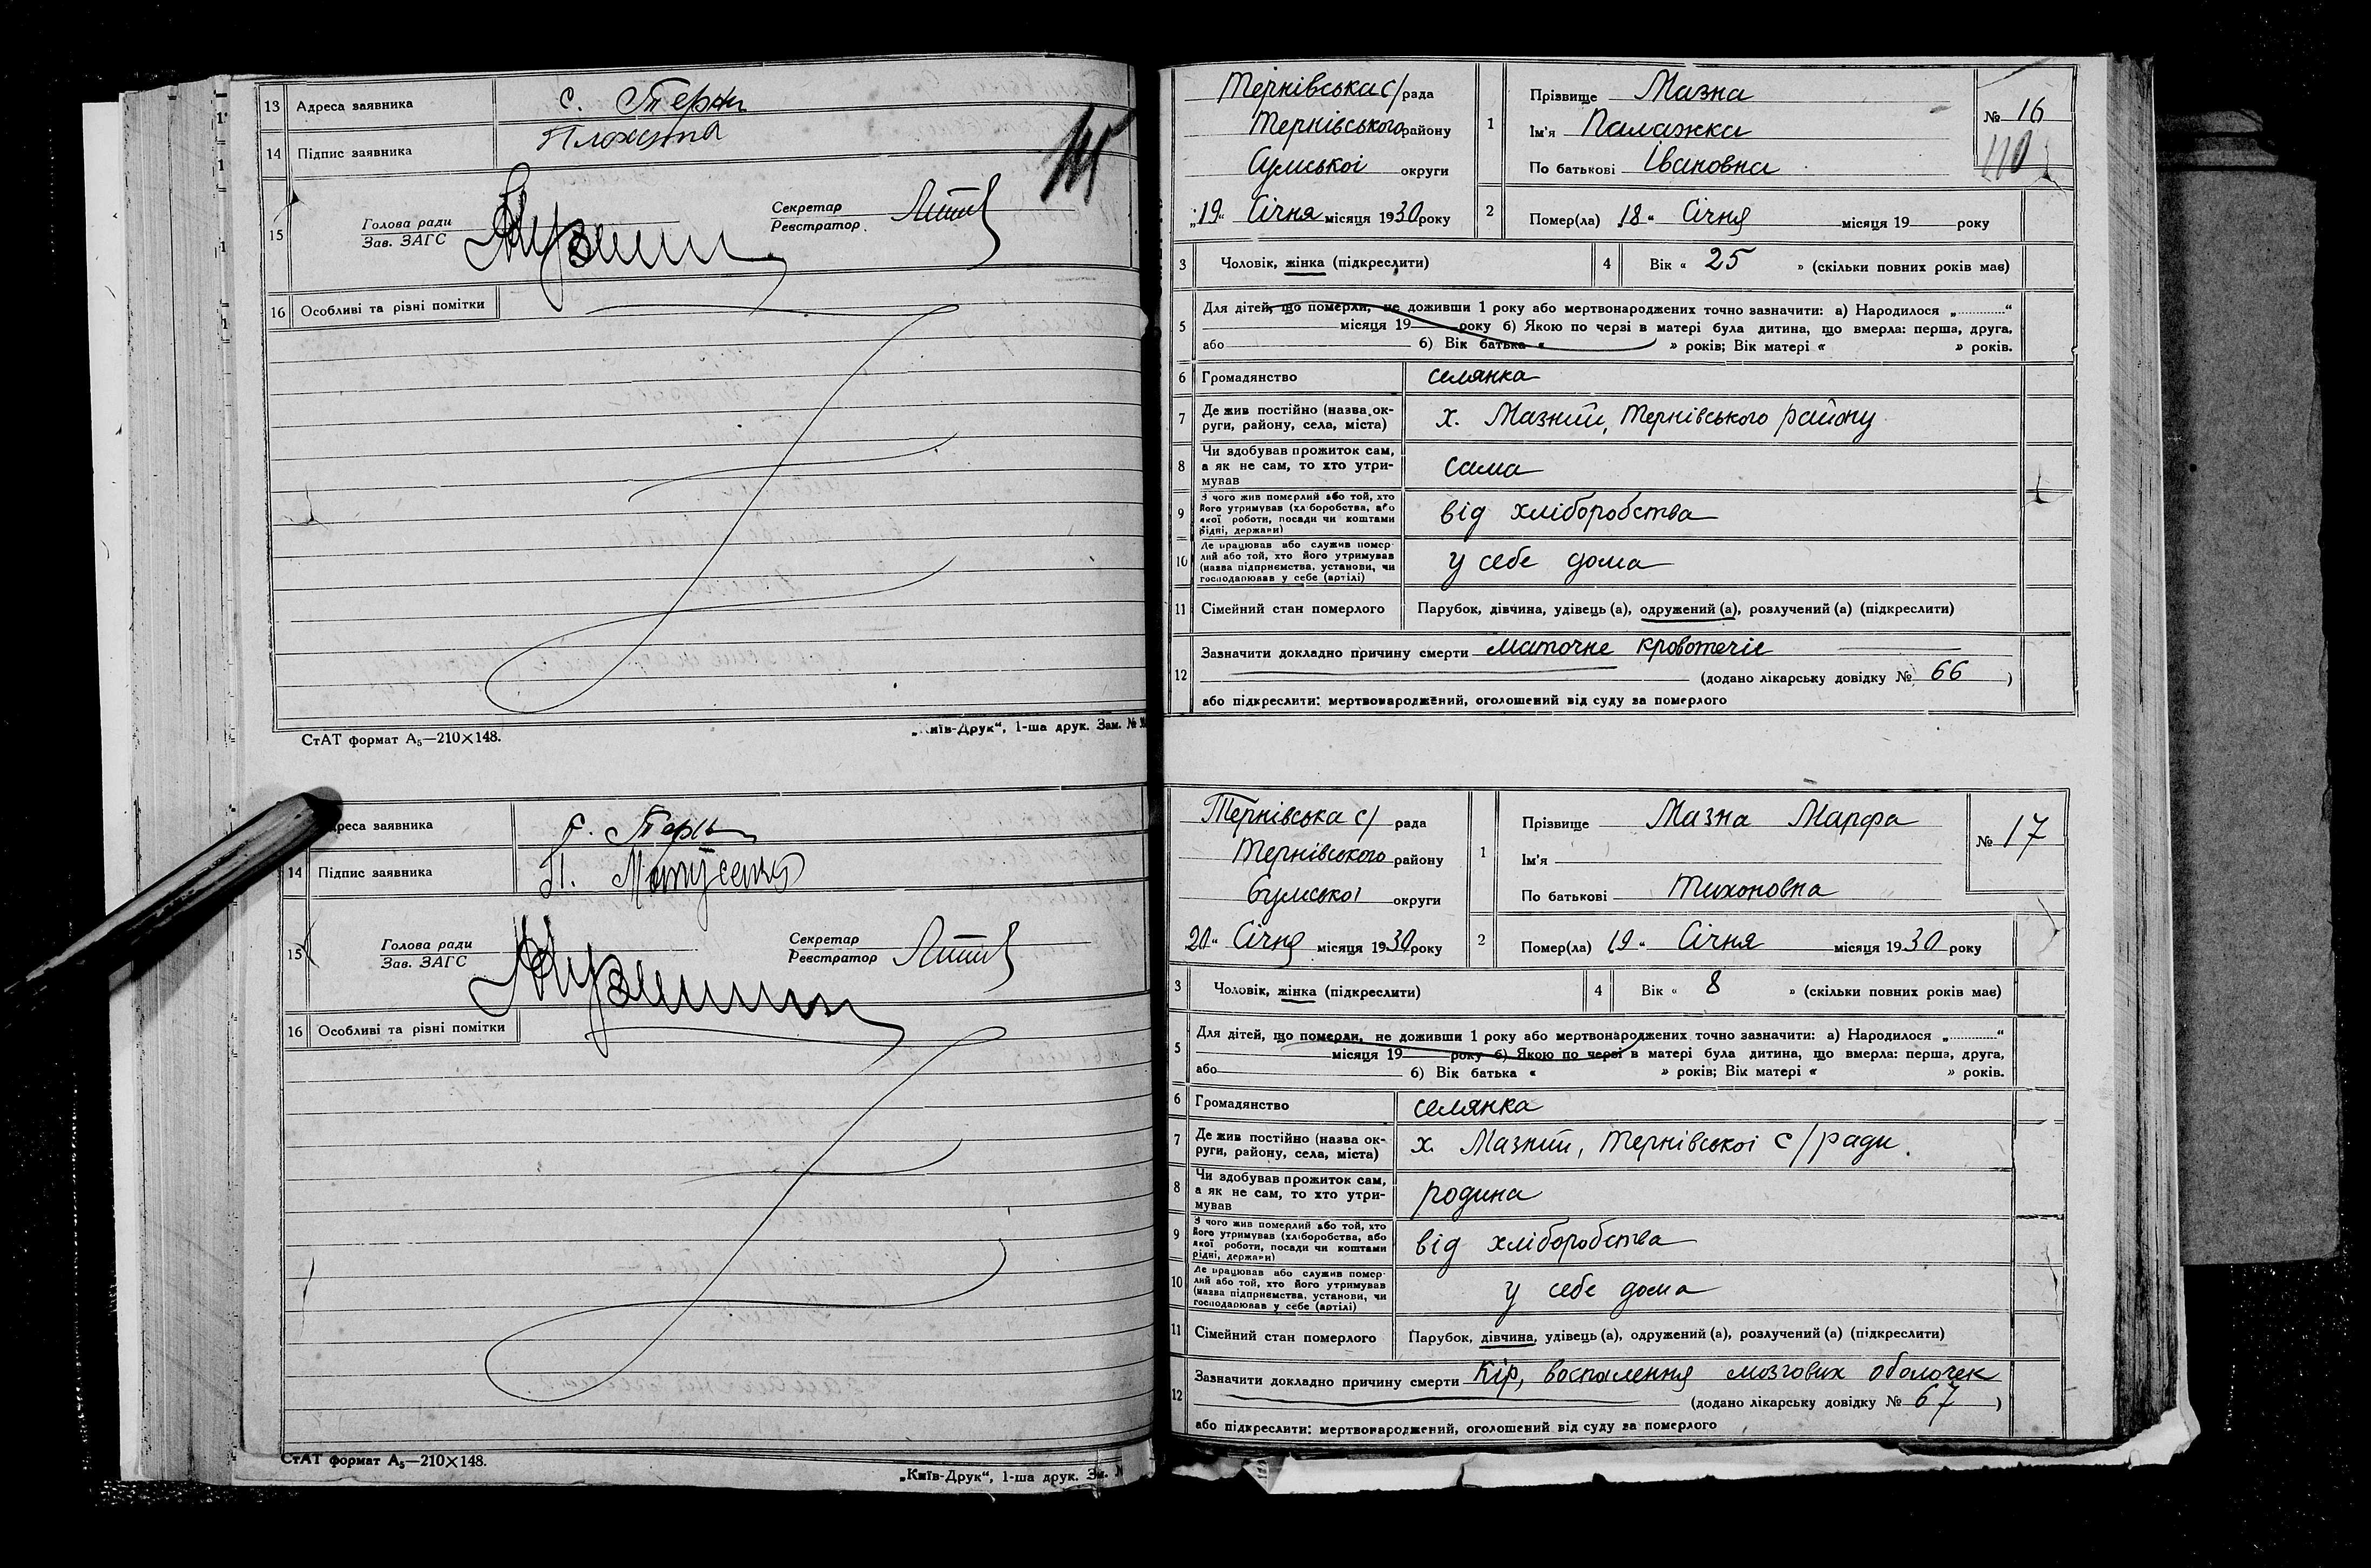 13 Адреса заявника с. Терни
14 Підпис заявника Плохута
15 Голова ради
Зав. ЗАГС
Секретар
Реєстратор
16 Особливі та різні помітки
СтАТ формат А₅—210×148.
„Київ-Друк“, 1-ша друк. Зам. №
Адреса заявника с. Терни
14 Підпис заявника П. Матусенко
15 Голова ради
Зав. ЗАГС
Секретар
Реєстратор
16 Особливі та різні помітки
СтАТ формат А₅—210×148.
„Київ-Друк“, 1-ша друк. Зам. №
Тернівська с/ рада
Тернівського району
Сумської округи
„19“ Січня місяця 1930 року
1 Прізвище Мазна
Ім'я Палажка
По батькові Івановна
№ 16
110
2 Помер(ла) 18 “ Січня місяця 19 року
3 Чоловік, жінка (підкреслити)
4 Вік « 25 » (скільки повних років має)
5 Для дітей, що померли, не доживши 1 року або мертвонароджених точно зазначити: а) Народилося „............“
місяця 19 року б) Якою по черзі в матері була дитина, що вмерла: перша, друга,
або б) Вік батька « » років; Вік матері « » років.
6 Громадянство селянка
7 Де жив постійно (назва ок-
руги, району, села, міста) х. Мазний, Тернівського району
8 Чи здобував прожиток сам,
а як не сам, то хто утри-
мував сама
9 З чого жив померлий або той, хто
його утримував (хліборобства, або
якої роботи, посади чи коштами
рідні, держави) від хліборобства
10 Де працював або служив помер-
лий або той, хто його утримував
(назва підприємства, установи, чи
господарював у себе (артілі) у себе дома
11 Сімейний стан померлого Парубок, дівчина, удівець (а), одружений (а), розлучений (а) (підкреслити)
12 Зазначити докладно причину смерти маточне кровотечіє
(додано лікарську довідку № 66 )
або підкреслити: мертвонароджений, оголошений від суду за померлого
Тернівська с/ рада
Тернівського району
Сумської округи
20 “ Січня місяця 1930 року
1 Прізвище Мазна Марфа
Ім'я
По батькові Тихоновна
№ 17
2 Помер(ла) 19 “ Січня місяця 1930 року
3 Чоловік, жінка (підкреслити)
4 Вік « 8 » (скільки повних років має)
5 Для дітей, що померли, не доживши 1 року або мертвонароджених точно зазначити: а) Народилося „............“
місяця 19 року б) Якою по черзі в матері була дитина, що вмерла: перша, друга,
або б) Вік батька « » років; Вік матері « » років.
6 Громадянство селянка
7 Де жив постійно (назва ок-
руги, району, села, міста) х. Мазний, Тернівської с/ради.
8 Чи здобував прожиток сам,
а як не сам, то хто утри-
мував родина
9 З чого жив померлий або той, хто
його утримував (хліборобства, або
якої роботи, посади чи коштами
рідні, держави) від хліборобства
10 Де працював або служив помер-
лий або той, хто його утримував
(назва підприємства, установи, чи
господарював у себе (артілі) у себе дома
11 Сімейний стан померлого Парубок, дівчина, удівець (а), одружений (а), розлучений (а) (підкреслити)
12 Зазначити докладно причину смерти Кір, воспалення мозгових оболочек
(додано лікарську довідку № 67 )
або підкреслити: мертвонароджений, оголошений від суду за померлого